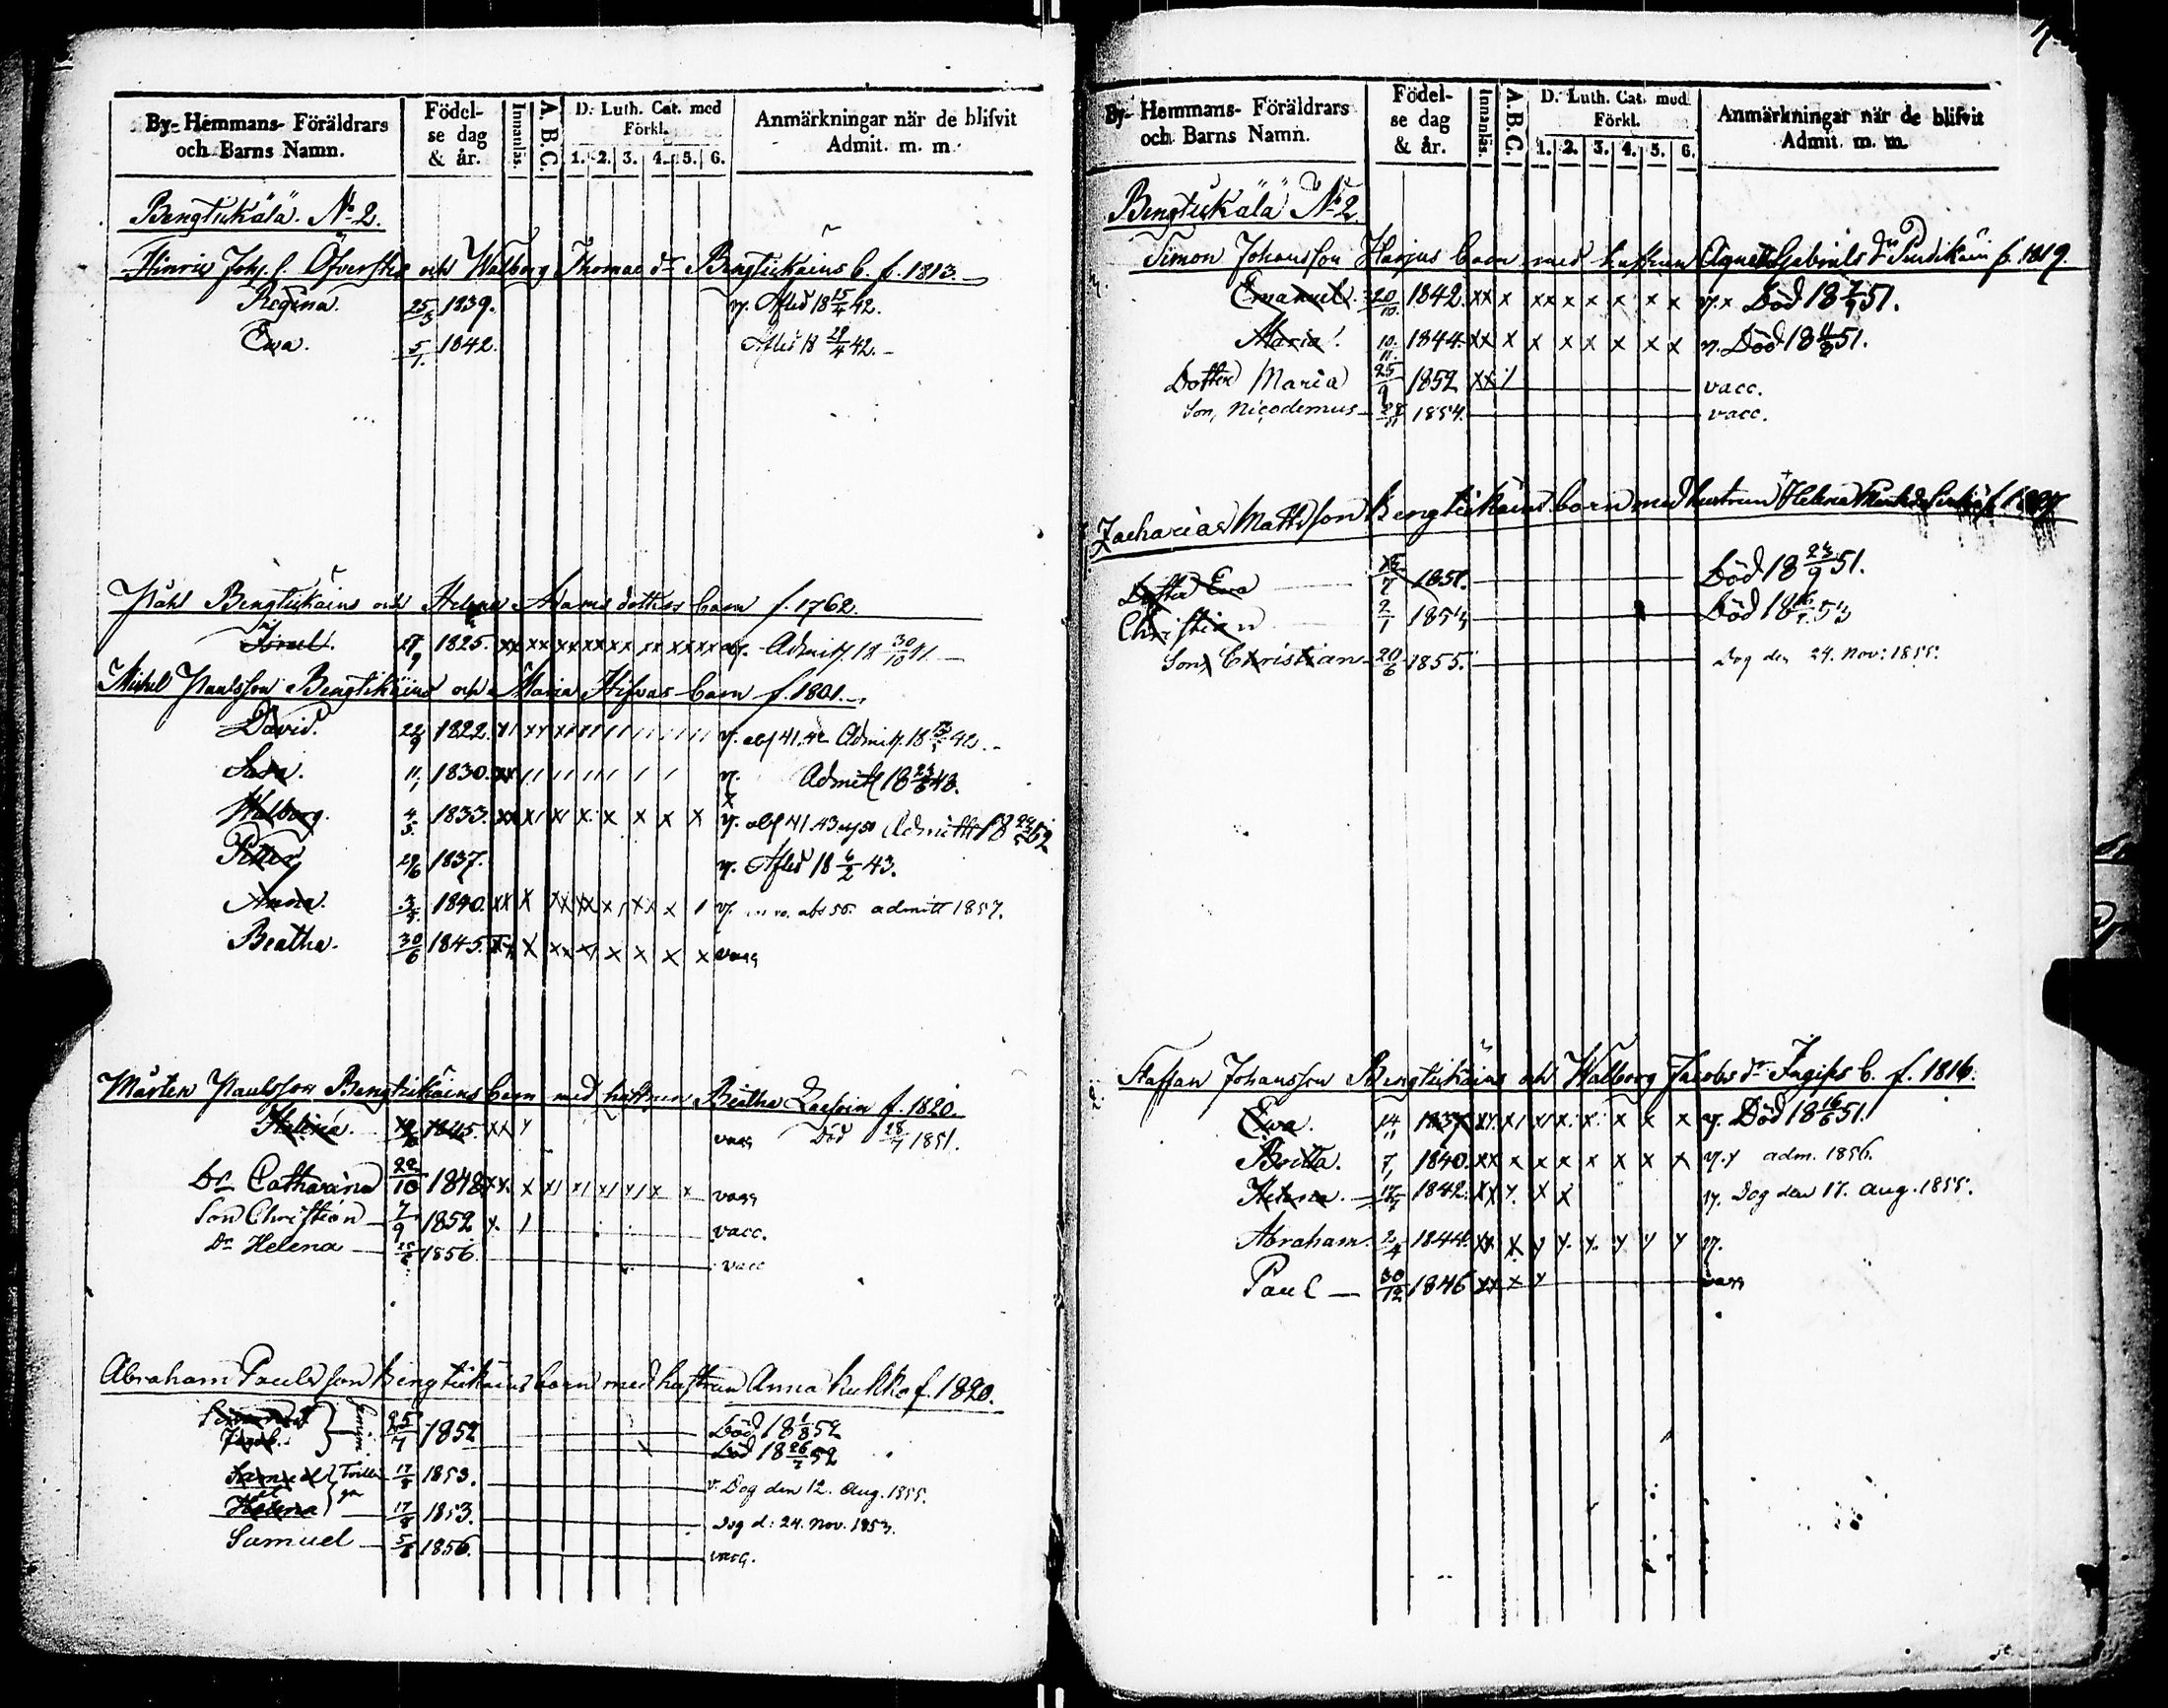 By- Hemmans- Föräldrars och Barns Namn. Födel-se dag & år. Innanläs. A.B.C. D. Luth. Cat. med Förkl. 1. 2. 3. 4. 5. 6. Anmärkningar när de blifvit Admit. m. m.
Bengtukälä. No 2.
Hinric Joh. s. Öfverstes och Walborg Thomae dr Bengtukäins b. f. 1813.
Regina. 25/3 1839. v. Afled 18 15/4 42.
Ewa. 5/1. 1842. Afled 18 29/4 42.
Påhl Bengtukäins och Helena Adams dotters barn f. 1762.
Israel. 27/9 1825. xx xx xx xx xx xx xx xx v. Admitt. 18 30/10 41.
Michel Paulsson Bengtukäins och Maria Hifvas barn f. 1801.
David. 22/9 1822. v. abs 41.42 Admitt. 42.
Sara. 1830. v. Admitt 18 48.
Walborg. 4/5. 1833. v. abs 41.43 Admitt 18 52
Petter 29/6 1837. v. Afled 18 6/2 43.
Anna. 1840. xx x v. abs 56. admitt 1857.
Beatha. 30/6 1845. vacc
Mårten Paulsson Bengtukäins barn med hustrun Beatha f. 1820.
Helena. 1845. xx vacc Död 28/7 1851.
Dr Catharina 22/10 1848 vacc
Son Christian 7/9 1852 vacc.
Dr Helena 1856. vacc
Abraham Paulsson Bengtukäins barn med hustrun Anna Kukko f. 1820.
25/7 1852 Död 18 1/8 52
Jacob. Död 18 26/7 52
Samuel Tvillin 17/8 1853. v. Dog den 12. Aug. 1855.
et gar
Helena 17/8 1853. Dog d: 24. Nov. 1853.
Samuel 5/6 1856. vacc.
By- Hemmans- Föräldrars och Barns Namn. Födel-se dag & år. Innanläs. A.B.C. D. Luth. Cat. med Förkl. 1. 2. 3. 4. 5. 6. Anmärkningar när de blifvit Admit. m. m.
Bengtukälä No 2.
Simon Johansson Harjus barn med hustrun Agneta Gabriels dr f. 1819.
Emanuel. 20/10. 1842. xx x xx x x x x x v. x Död 18 7/9 51.
Maria. 10/11. 1844. xx x x x x x x x v. Död 18 51.
Dotter Maria 25/9 1852 xx vacc.
Son, Nicodemus 1854. vacc.
Zacharias Mattsson Bengtukäins barn med hustrun Helena
Dotter Ewa 1851. Död 18 23/9 51.
Christian 2/1 1853 Död 18 53
Son, Christian 20/6 1855. Dog den 24. Nov: 1855.
Staffan Johansson Bengtukäins och Walborg Jacobs dr Ingiss b. f. 1816.
Ewa. 14/11 1837 v. Död 18 16/6 51.
Britta. 1840. xx x x x x x x x v. x adm. 1856.
Helena. 1842. v. Dog den 17. Aug. 1855.
Abraham. 2/4 1844. v.
Paul 30/12 1846 vacc